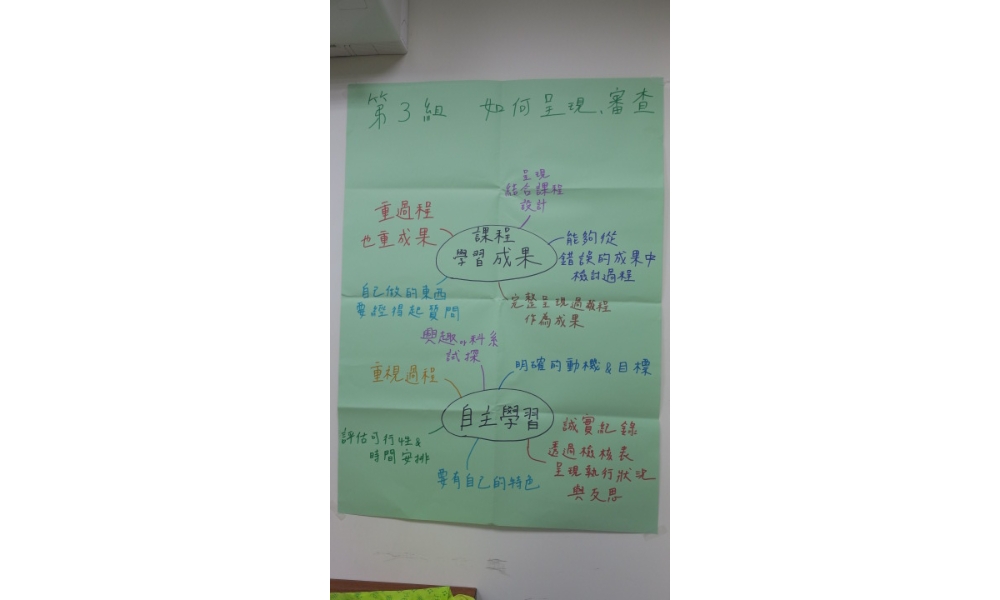 第3組 如何呈現、審查
呈現
結合課程
設計
重過程
也重成果
課程
學習成果
能夠從
錯誤的成果中
檢討過程
自己做的東西
要經得起質問
完整呈現過程
作為成果
興趣、科系
試探
明確的動機&目標
重視過程
自主學習
誠實紀錄
透過檢核表
呈現執行狀況
與反思
評估可行性&
時間安排
要有自己的特色